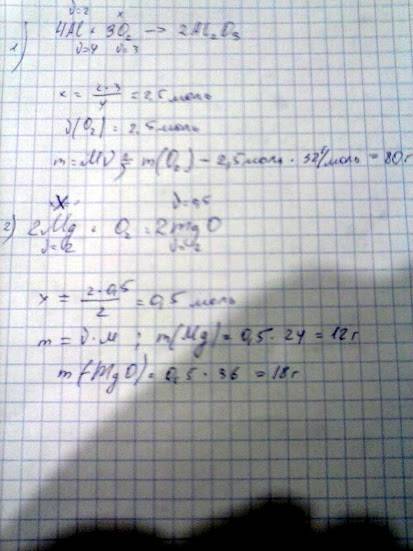 ν=2 x
1) 4Al + 3O₂ → 2Al₂O₃
ν=4 ν=3
x = 2·3/4 = 2,5 моль
ν(O₂) = 2,5 моль
m = Mν m(O₂) - 2,5 моль · 32 г/моль = 80 г
x ν=0,5
2) 2Mg + O₂ = 2MgO
ν=2 ν=2
x = 2·0,5/2 = 0,5 моль
m = ν·м ; m(Mg) = 0,5 · 24 = 12 г
m(MgO) = 0,5 · 36 = 18 г